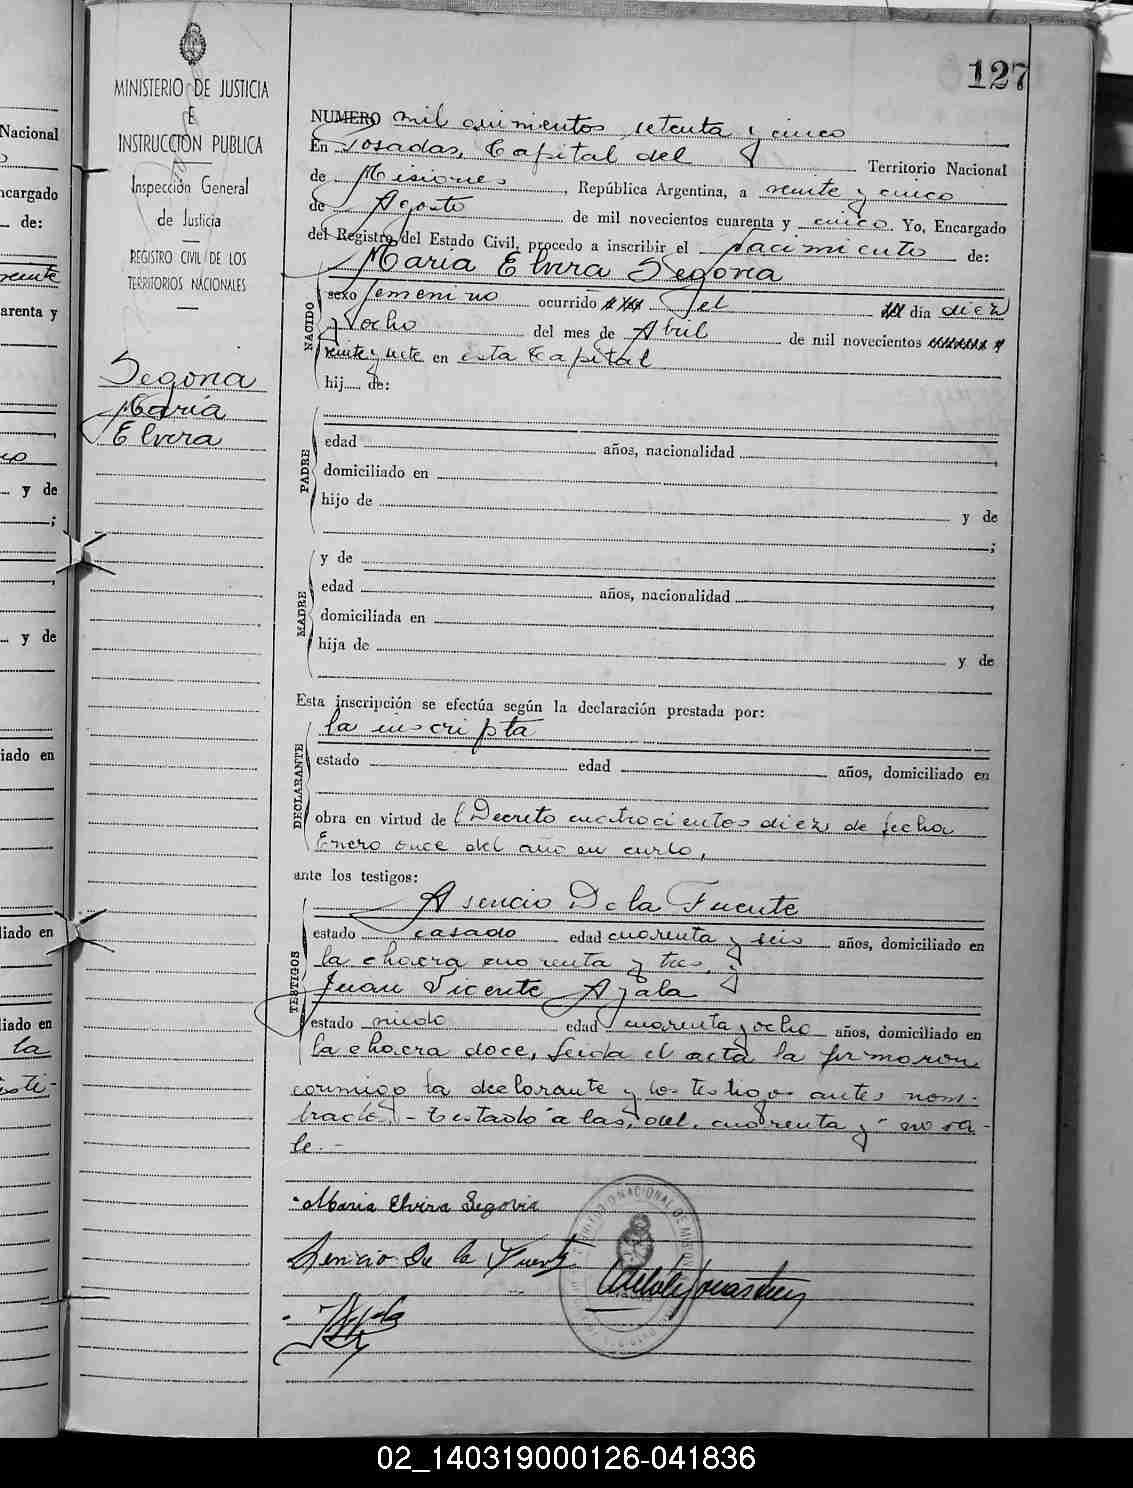 127
MINISTERIO DE JUSTICIA
E
INSTRUCCIÓN PUBLICA
Inspección General
de Justicia
REGISTRO CIVIL DE LOS
TERRITORIOS NACIONALES
Segovia
María
Elvira
Nacional
ncargado
de:
arenta y
y de
;
y de
iado en
liado en
liado en
la
NUMERO mil quinientos setenta y cinco
En Posadas, Capital del Territorio Nacional
de Misiones, República Argentina, a veinte y cinco
de Agosto de mil novecientos cuarenta y cinco. Yo, Encargado
del Registro del Estado Civil, procedo a inscribir el nacimiento de:
María Elvira Segovia
NACIDO
sexo femenino ocurrido el día diez
y ocho del mes de Abril de mil novecientos
veinte y siete en esta Capital
hij de:
PADRE
edad años, nacionalidad
domiciliado en
hijo de y de
;
MADRE
y de
edad años, nacionalidad
domiciliada en
hija de y de
Esta inscripción se efectúa según la declaración prestada por:
DECLARANTE
la inscripta
estado edad años, domiciliado en
obra en virtud de l Decreto cuatrocientos diez, de fecha
Enero once del año en curso,
ante los testigos:
TESTIGOS
Asencio De la Fuente
estado casado edad cuarenta y seis años, domiciliado en
la chacra cuarenta y tres, y
Juan Vicente Ayala
estado viudo edad cuarenta y ocho años, domiciliado en
la chacra doce, leida el acta la firmaron
conmigo la declarante y los testigos antes nom-
brados.- Testado "a las, del, cuarenta y" no va-
le.-
Maria Elvira Segovia
Asencio De la Fuente
02_140319000126-041836